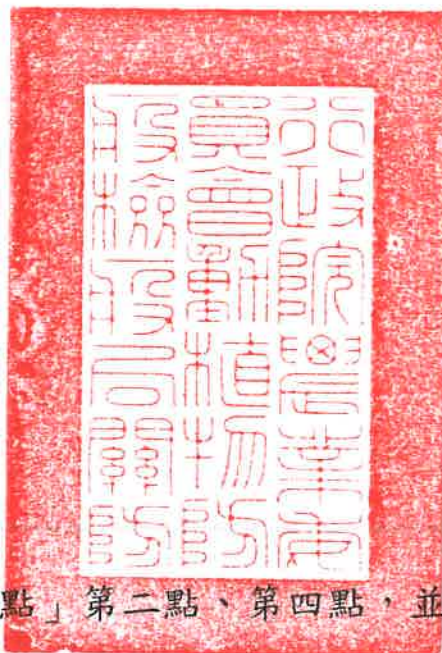 行政院農業委
員會動植物防
疫檢疫局關防
點」第二點、第四點，並